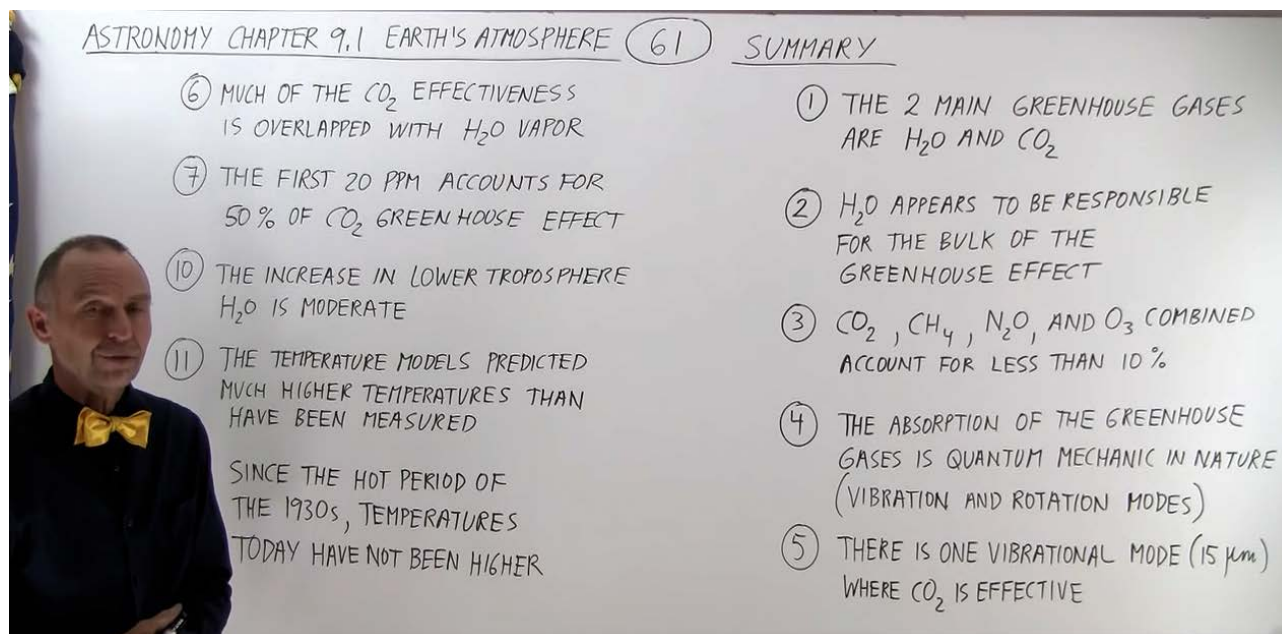 ASTRONOMY CHAPTER 9.1 EARTH'S ATMOSPHERE 61 SUMMARY
6 MUCH OF THE CO₂ EFFECTIVENESS
IS OVERLAPPED WITH H₂O VAPOR
7 THE FIRST 20 PPM ACCOUNTS FOR
50% OF CO₂ GREENHOUSE EFFECT
10 THE INCREASE IN LOWER TROPOSPHERE
H₂O IS MODERATE
11 THE TEMPERATURE MODELS PREDICTED
MUCH HIGHER TEMPERATURES THAN
HAVE BEEN MEASURED
SINCE THE HOT PERIOD OF
THE 1930s, TEMPERATURES
TODAY HAVE NOT BEEN HIGHER
1 THE 2 MAIN GREENHOUSE GASES
ARE H₂O AND CO₂
2 H₂O APPEARS TO BE RESPONSIBLE
FOR THE BULK OF THE
GREENHOUSE EFFECT
3 CO₂, CH₄, N₂O, AND O₃ COMBINED
ACCOUNT FOR LESS THAN 10%
4 THE ABSORPTION OF THE GREENHOUSE
GASES IS QUANTUM MECHANIC IN NATURE
(VIBRATION AND ROTATION MODES)
5 THERE IS ONE VIBRATIONAL MODE (15 μm)
WHERE CO₂ IS EFFECTIVE